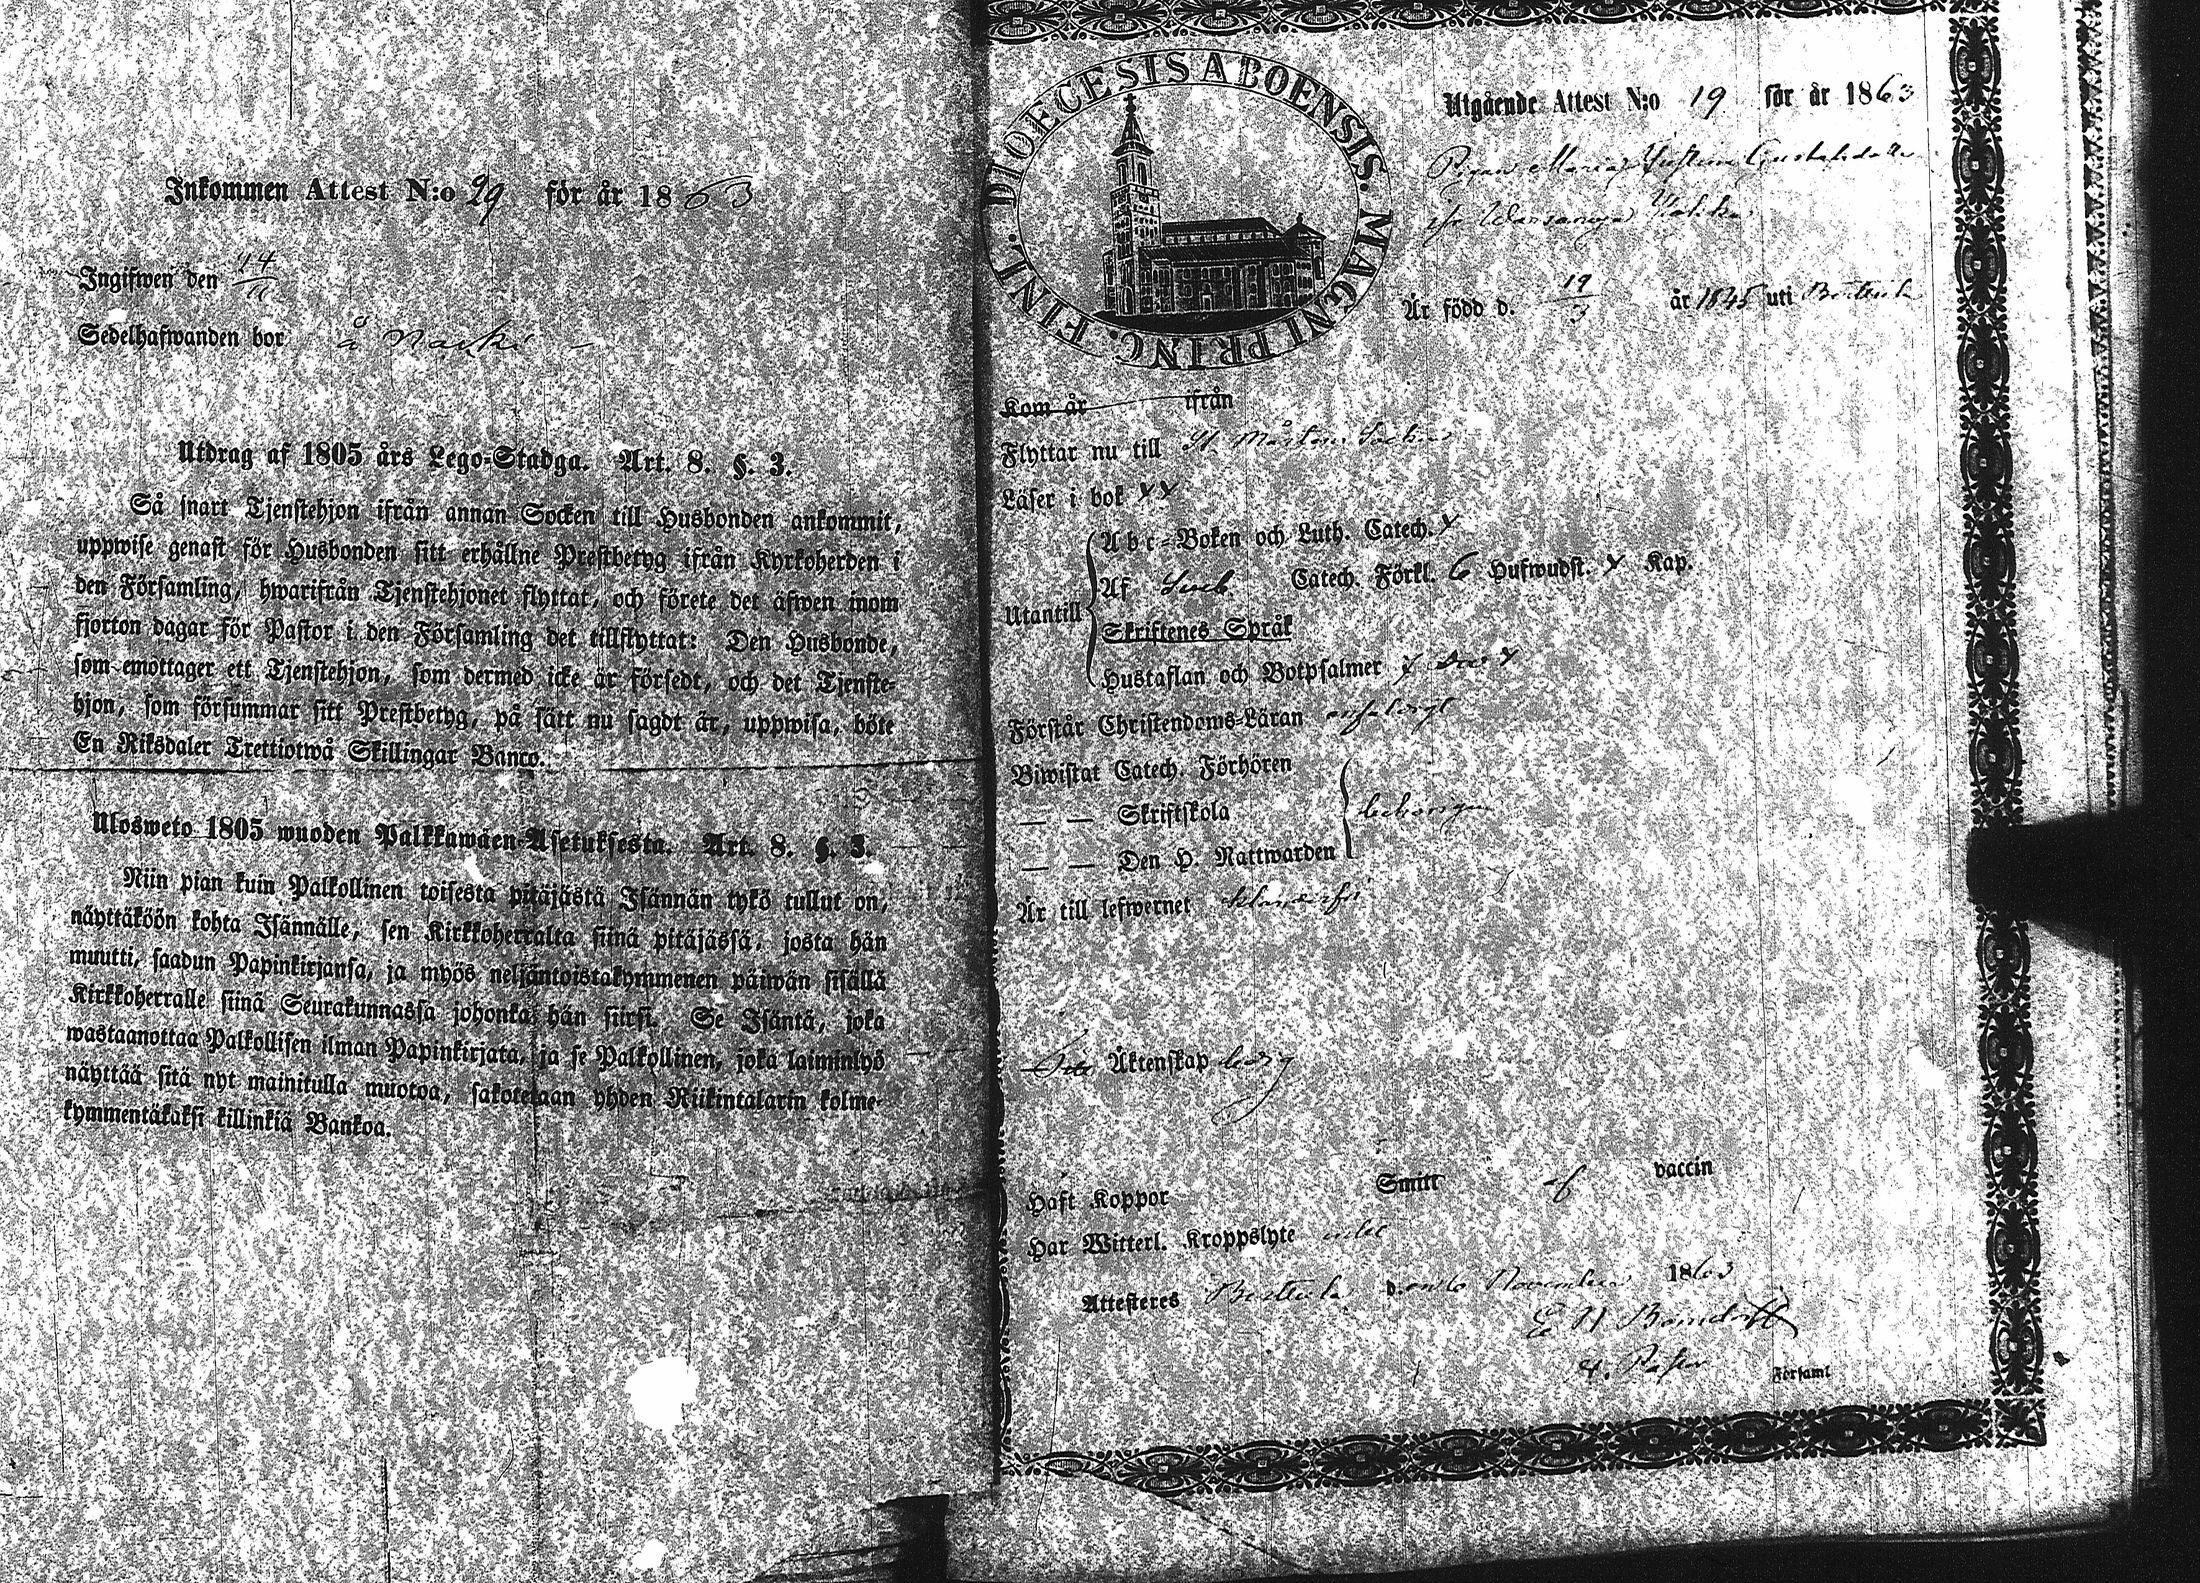 Inkommen Attest N:o 29 för år 1863
Ingifwen den 14/11
Sedelhafwanden bor å Naski
Utdrag af 1805 års Lego-Stadga. Art. 8. §. 3.
Så snart Tjenstehjon ifrån annan Socken till Husbonden ankommit,
uppwise genast för Husbonden sitt erhållne Prestbetyg ifrån Kyrkoherden i
den Församling, hwarifrån Tjenstehjonet flyttat, och förete det äfwen inom
fjorton dagar för Pastor i den Församling det tillflyttat: Den Husbonde,
som emottager ett Tjenstehjon, som dermed icke är försedt, och det Tjenste-
hjon, som försummar sitt Prestbetyg, på sätt nu sagdt är, uppwisa, böte
En Riksdaler Trettiotwå Skillingar Banco.
Ulosweto 1805 wuoden Palkkawäen-Asetuksesta. Art. 8. §. 3.
Niin pian kuin Palkollinen toisesta pitäjästä Isännän tykö tullut on,
näyttäköön kohta Isännälle, sen Kirkkoherralta siinä pitäjässä, josta hän
muutti, saadun Papinkirjansa, ja myös neljäntoistakymmenen päiwän sisällä
Kirkkoherralle siinä Seurakunnassa johonka hän siirsi. Se Isäntä, joka
wastaanottaa Palkollisen ilman Papinkirjata, ja se Palkollinen, joka laiminlyö
näyttää sitä nyt mainitulla muotoa, sakotetaan yhden Riikintalarin kolme-
kymmentäkaksi killinkiä Bankoa.
DIOECESIS ABOENSIS. MAGNI PRINC. FINL.
Utgående Attest N:o 19 för år 1863
Pigan Maria Gustafsdotter
ifr
Är född d. 19/3 år 1845 uti
Kom år ifrån
Flyttar nu till St Mårtens Socken
Läser i bok
Utantill
Abc-Boken och Luth. Catech.
Af Sveb. Catech. Förkl. 6 Hufwudst. Kap.
Skriftenes Språk
Hustaflan och Botpsalmer
Förstår Christendoms-Läran
Biwistat Catech. Förhören
— — Skriftskola
— — Den H. Nattwarden
behörigen
Är till lefwernet klanderfri
Till Äktenskap ledig
Haft Koppor Smitt af vaccin
Har Witterl. Kroppslyte intet
Attesteres den 6 November 1863
E H
Församl